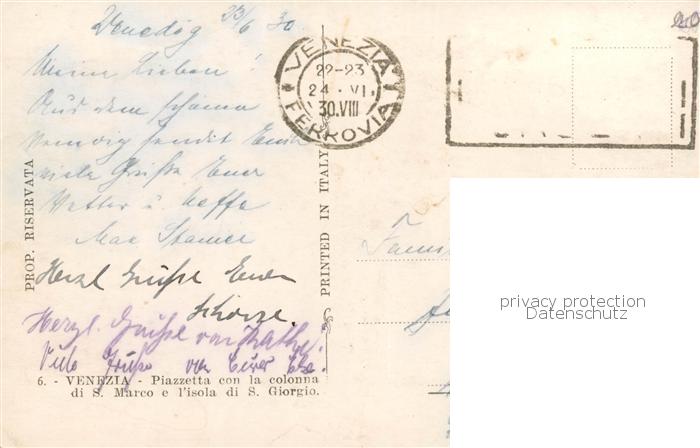 Venedig 23/6 30.
Meine Lieben!
Aus dem schönen
Venedig sendet Euch
viele Grüße Euer
Vetter u. Neffe
Max
Herzl Grüße Euer
Herzl. Grüße von Käthe.
Viele Grüße von Eurer
6. - VENEZIA - Piazzetta con la colonna
di S. Marco e l'isola di S. Giorgio.
PROP. RISERVATA
PRINTED IN ITALY
VENEZIA
22-23
24 · VI
30.VIII
FERROVIA
privacy protection
Datenschutz